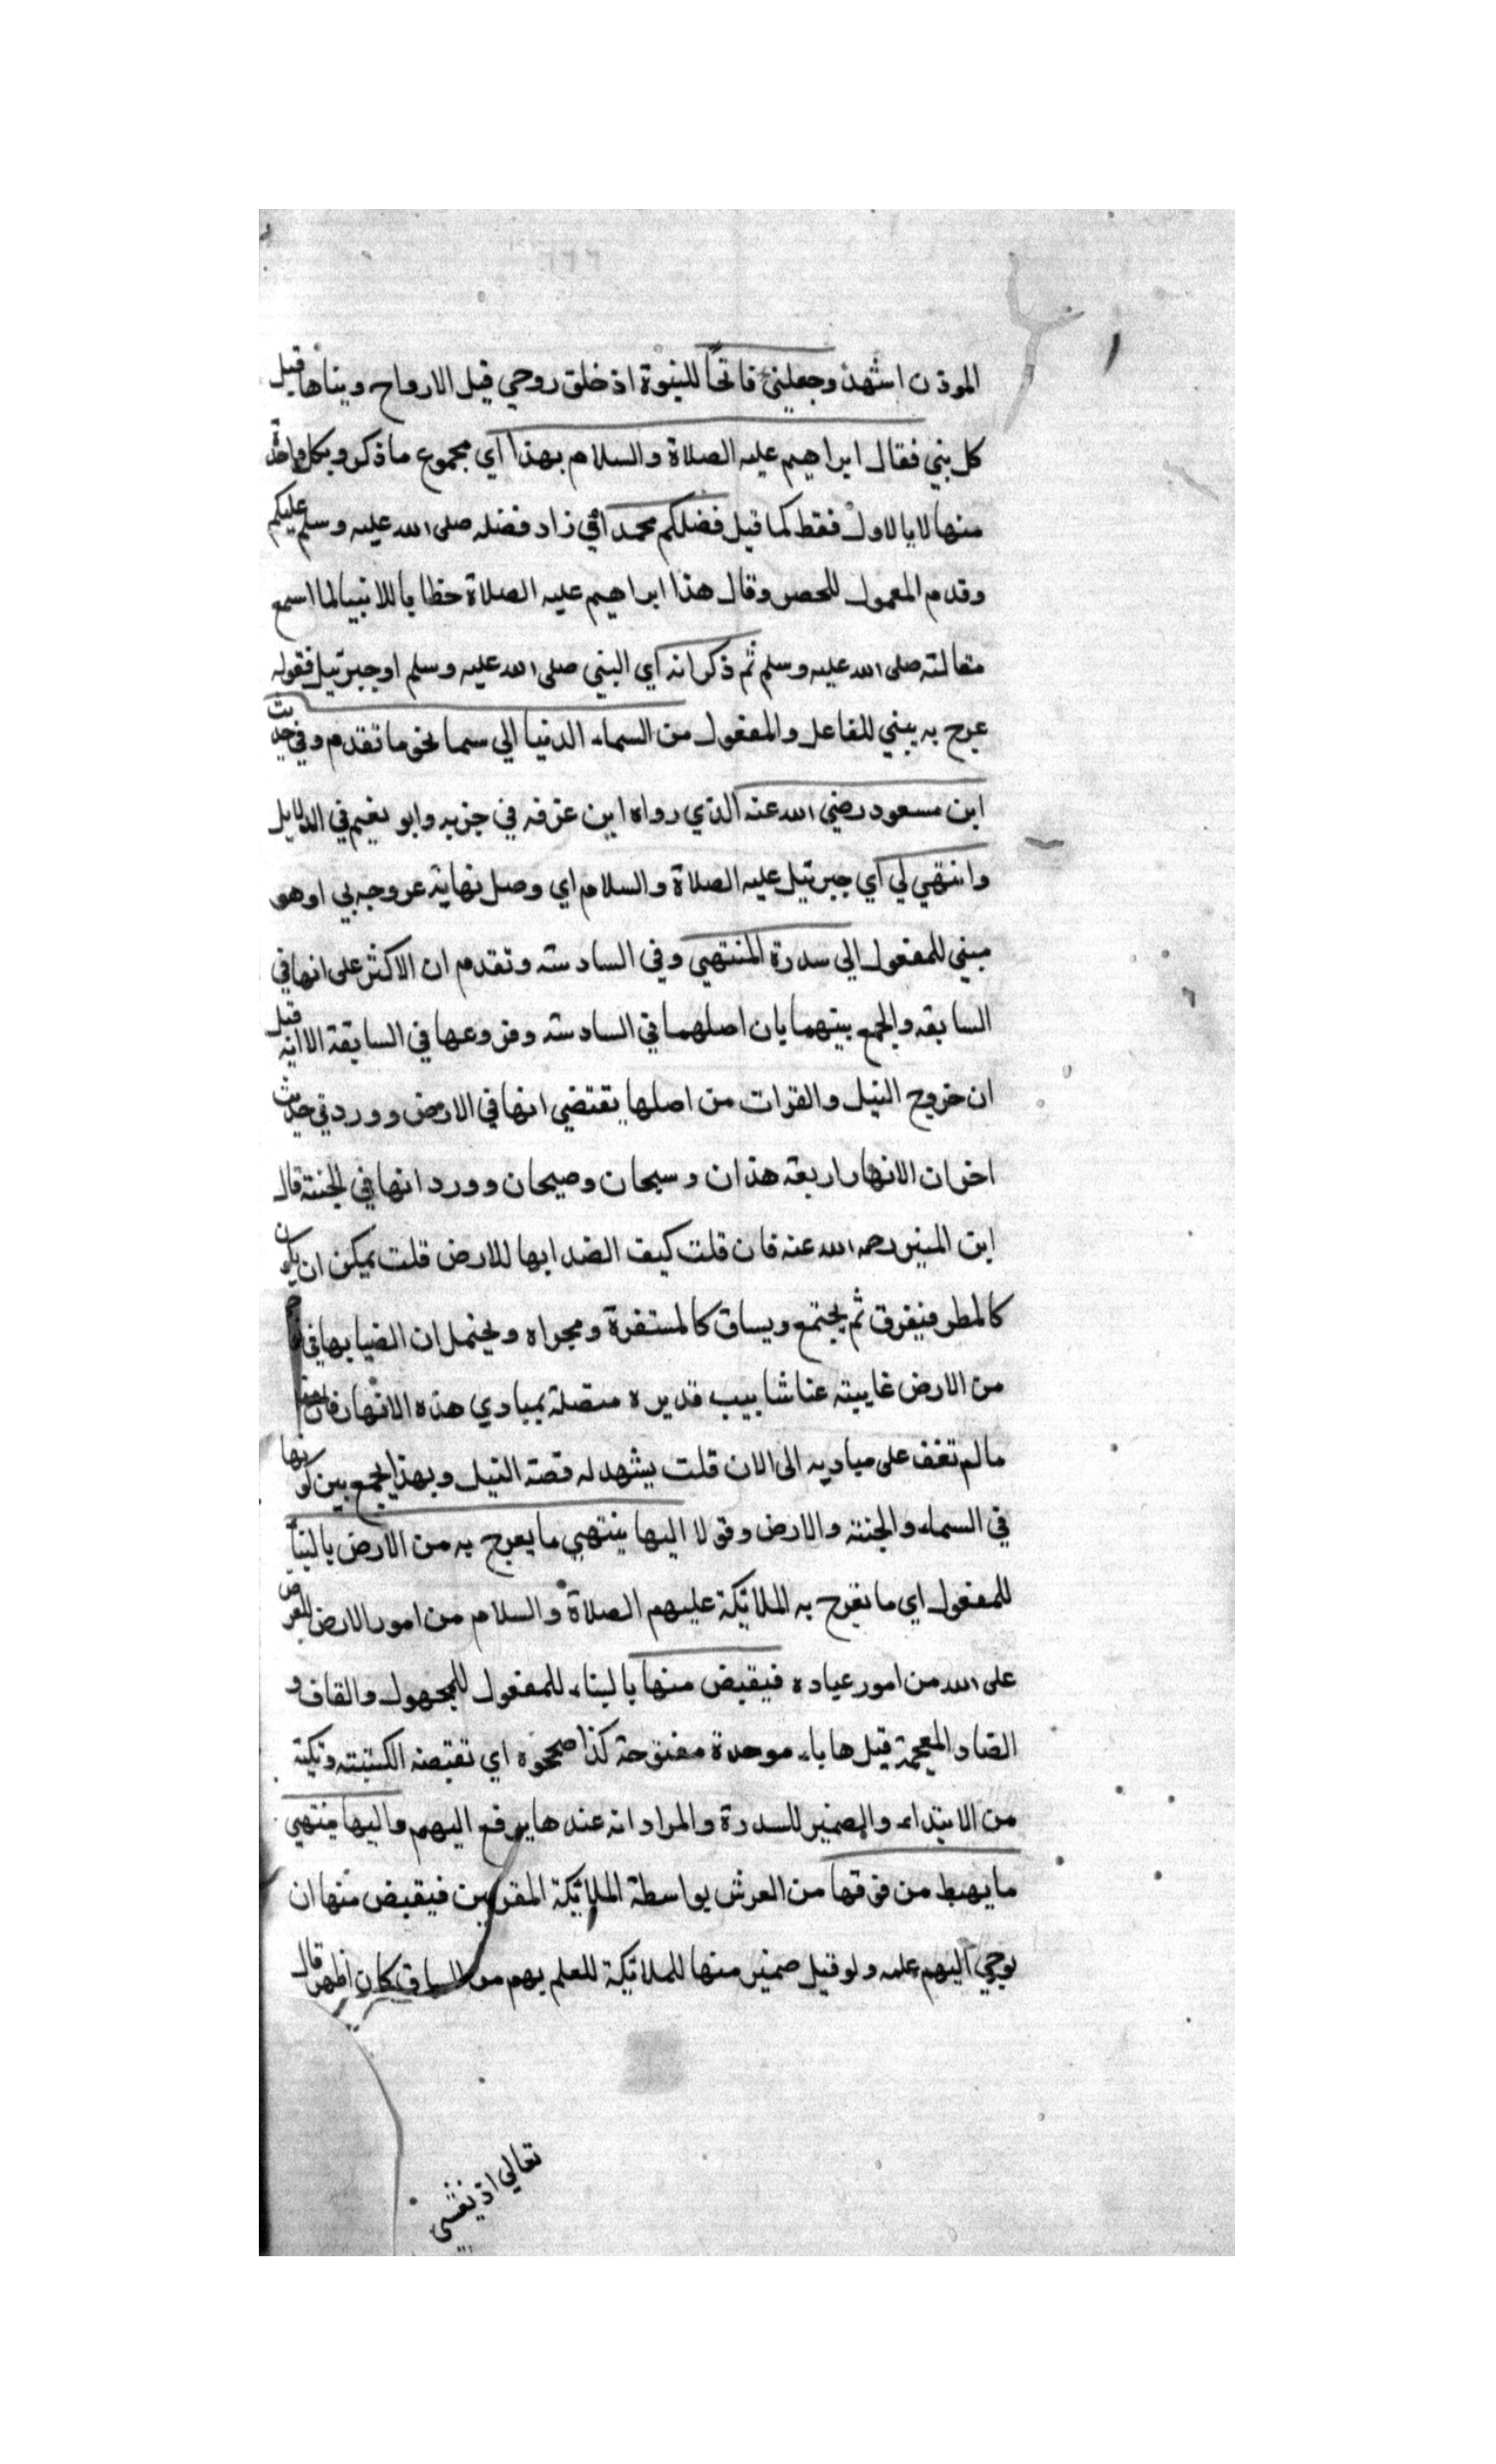 الموذن اشهد وجعلني فاتحاً للنبوة اذ خلق روحي قبل الارواح وبناها قبل
كل بني فقال ابراهيم عليه الصلاة والسلام بهذا اي مجموع ما ذكر وبكل واحد
منها لا بالاول فقط كما قيل فضلكم محمد اي زاد فضله صلى الله عليه وسلم عليكم
وقدم المعمول للحصر وقال هذا ابراهيم عليه الصلاة خطابا للانبيا لما اسمع
مقالته صلى الله عليه وسلم ثم ذكر انه اي النبي صلى الله عليه وسلم او جبرئيل فقوله
عرج به يبني للفاعل والمفعول من السماء الدنيا الي سما نحو ما تقدم وفي حديث
ابن مسعود رضي الله عنه الذي رواه ابن عرفه في جزيه وابو نعيم في الدلايل
وانتهي لي اي جبرئيل عليه الصلاة والسلام اي وصل نهاية عروجه بي او هو
مبني للمفعول الي سدرة المنتهي وفي السادسة وتقدم ان الاكثر على انها في
السابعه والجمع بينهما بان اصلهما في السادسة وفروعها في السابعة الا انه قيل
ان خروج النيل والفرات من اصلها يقتضي انها في الارض وورد في حديث
اخر ان الانهار اربعة هذان وسيحان وصيحان وورد انها في الجنة قال
ابن المنير رحمه الله عنه فان قلت كيف الصدابها للارض قلت يمكن ان يكون
كالمطر فيفرق ثم يجتمع ويساق كالمستفرة ومجراه ويحتمل ان الضيابها في
من الارض غايبته عنا شابيب قديره متصلة بمبادي هذه الانهار فان
ما لم تقف على مباديه الى الان قلت يشهد له قصة النيل وبهذا يجمع بين كونها
في السماء والجنة والارض وقولا اليها ينتهي ما يعرج به من الارض بالبنا
للمفعول اي ما تعرج به الملائكة عليهم الصلاة والسلام من امور الارض للعرض
على الله من امور عباده فيقبض منها بالبناء للمفعول للمجهول والقاف و
الضاد المعجمة قبلها باء موحدة مفتوحة كذا صححوه اي تقبضه الكتبته ونكتة
من الابتداء والضمير للسدرة والمراد انه عندها يرفع اليهم واليها ينتهي
ما يهبط من فوقها من العرش بواسطة الملائكة المقربين فيقبض منها ان
يوحي اليهم علمه ولو قيل ضمير منها للملائكة للعلم بهم من السياق كان اظهر قال
تعالي اذ يغشى